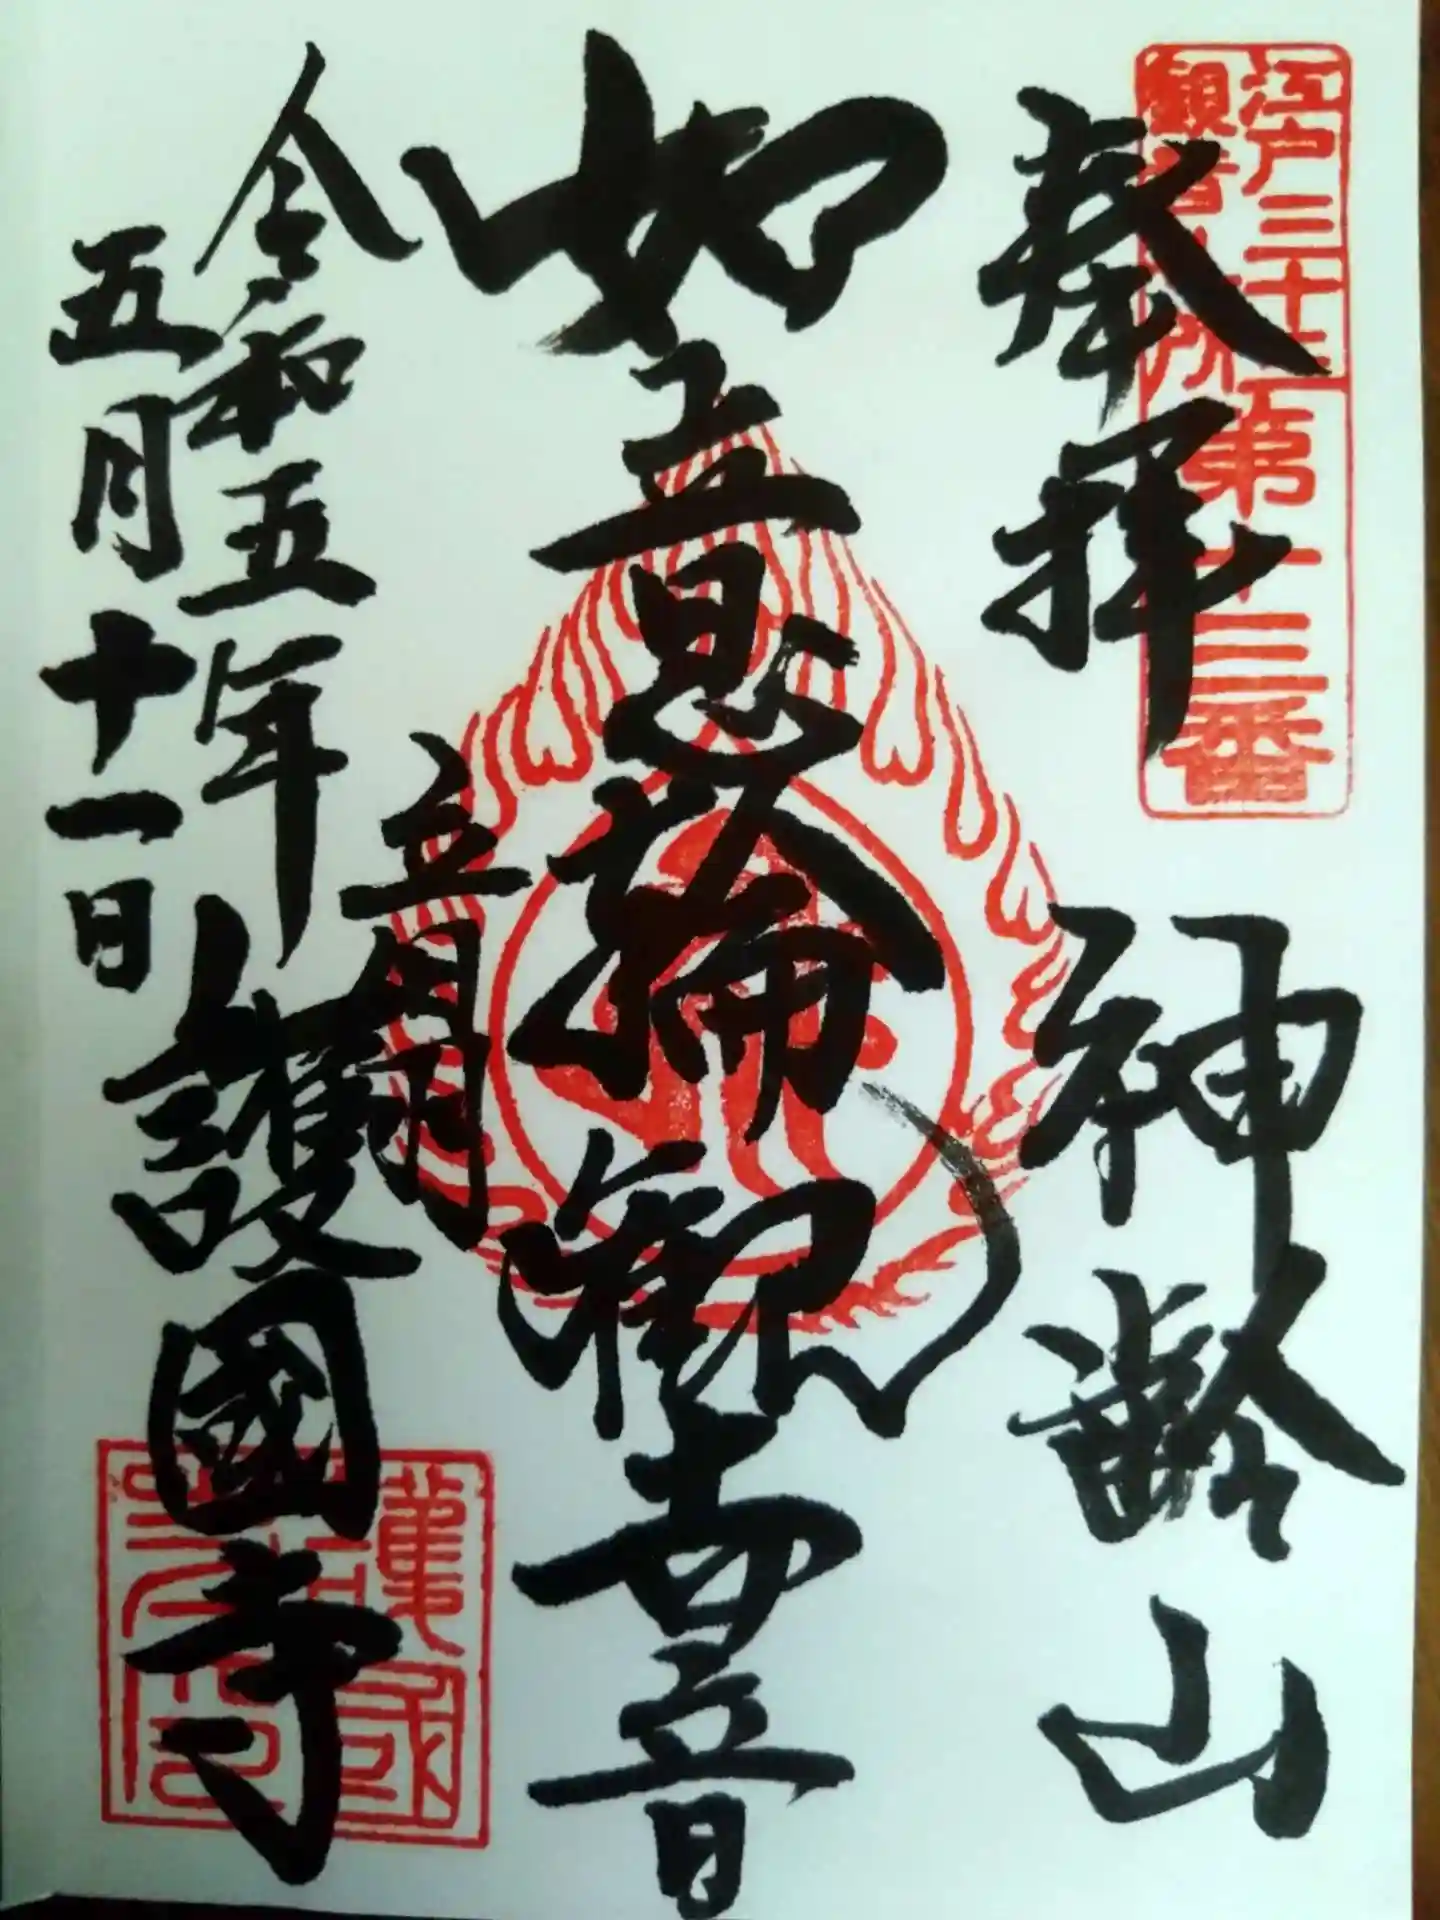 江戸三十三
觀音札所
第十三番
奉拝
神齢山
如意輪観世音
音羽
護國寺
令和五年
五月十一日